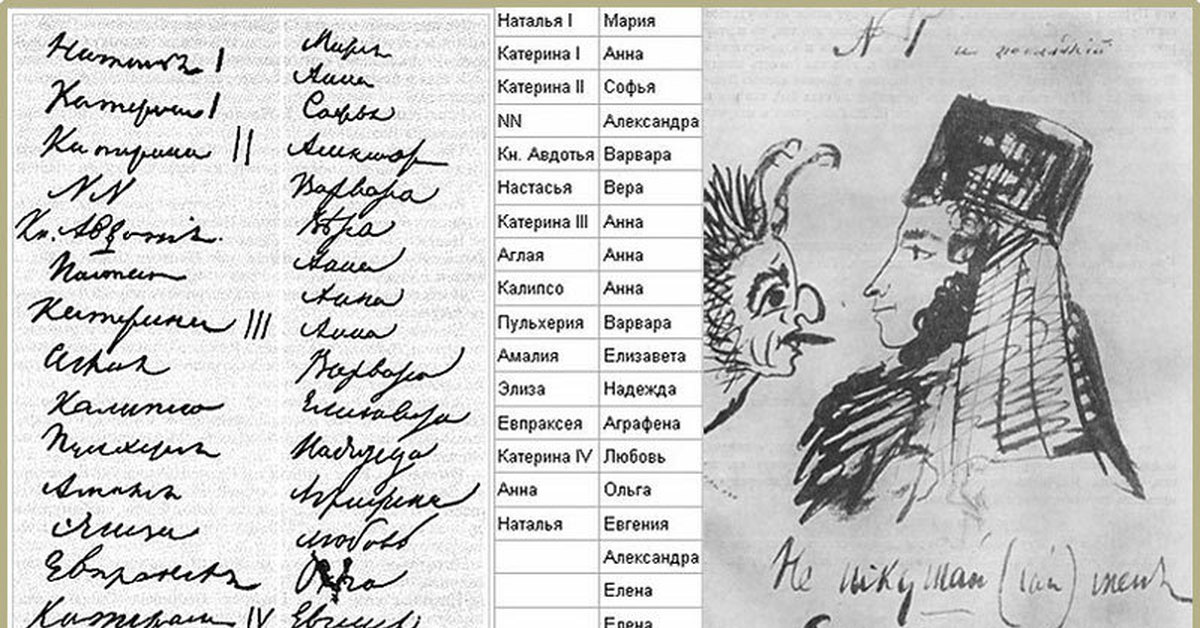 Наталья I
Катерина I
Катерина II
NN
Кн. Авдотія
Настасья
Катерина III
Аглая
Калипсо
Пульхерія
Амалія
Элиза
Евпраксея
Катерина IV
Марія
Анна
Софья
Александра
Варвара
Вѣра
Анна
Анна
Анна
Варвара
Елизавета
Надежда
Аграфена
Любовь
Ольга
Евгенія
Наталья I Мария
Катерина I Анна
Катерина II Софья
NN Александра
Кн. Авдотья Варвара
Настасья Вера
Катерина III Анна
Аглая Анна
Калипсо Анна
Пульхерия Варвара
Амалия Елизавета
Элиза Надежда
Евпраксея Аграфена
Катерина IV Любовь
Анна Ольга
Наталья Евгения
Александра
Елена
Елена
и последній
Не искушай (сай) меня